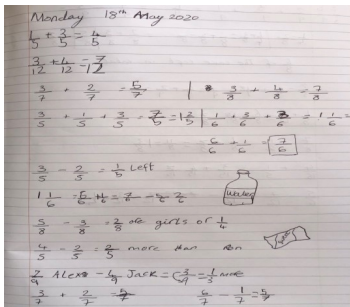 Monday 18th May 2020
1/5 + 3/5 = 4/5
3/12 + 4/12 = 7/12
3/7 + 2/7 = 5/7 | 3/8 + 4/8 = 7/8
3/5 + 1/5 + 3/5 = 7/5 = 1 2/5 | 1/6 + 3/6 + 3/6 = 1 1/6 =
6/6 + 1/6 = 7/6
3/5 - 2/5 = 1/5 left
1 1/6 = 6/6 + 1/6 = 7/6 -
Water
5/8 - 3/8 = 2/8 are girls or 1/4
4/5 - 2/5 = 2/5 more than
7/9 Alex - 4/9 Jack = 3/9 = 1/3 more
3/7 + 2/7 = 5/7 6/7 - 1/7 = 5/7